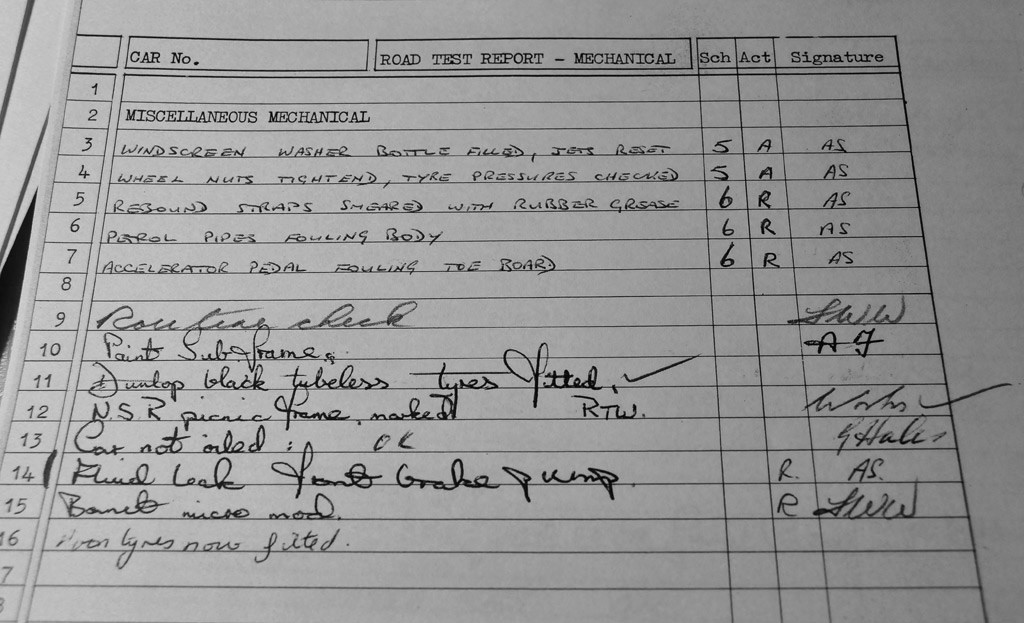 CAR No. ROAD TEST REPORT - MECHANICAL Sch Act Signature
1
2 MISCELLANEOUS MECHANICAL
3 WINDSCREEN WASHER BOTTLE FILLED, JETS RESET 5 A AS
4 WHEEL NUTS TIGHTEND, TYRE PRESSURES CHECKED 5 A AS
5 REBOUND STRAPS SMEARED WITH RUBBER GREASE 6 R AS
6 PETROL PIPES FOULING BODY 6 R AS
7 ACCELERATOR PEDAL FOULING TOE BOARD 6 R AS
8
9 Routine check
10 Paint Sub-frame.
11 Dunlop black tubeless tyres fitted. ✓
12 N.S.R picnic frame, marked RTW. Works ✓
13 Car not oiled : OK G Hales
14 Fluid leak front brake pump. R. AS.
15 micro mod. R
16 tyres now fitted.
7